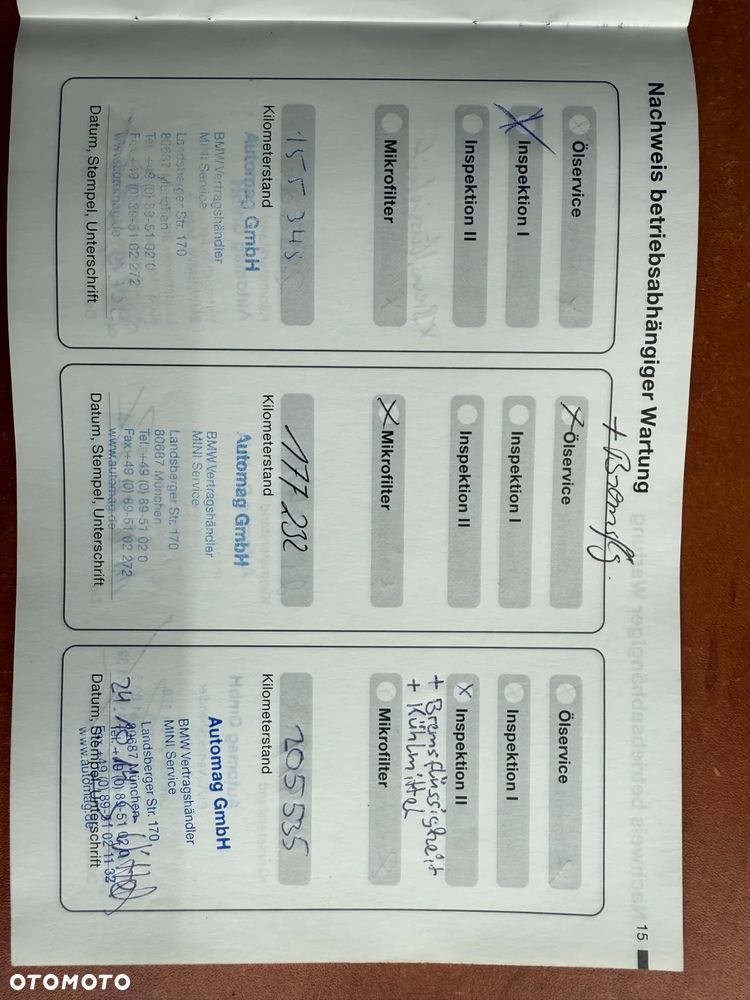 Nachweis betriebsabhängiger Wartung
15
Ölservice
X Inspektion I
Inspektion II
Mikrofilter
155 348
Kilometerstand
Automag GmbH
BMW Vertragshändler
MINI Service
Landsberger Str. 170
80687 München
Tel. +49 (0) 89-51 02 0
Fax +49 (0) 89-51 02 272
www.automag.de
Datum, Stempel, Unterschrift
X Ölservice
Inspektion I
Inspektion II
X Mikrofilter
177 232
Kilometerstand
Automag GmbH
BMW Vertragshändler
MINI Service
Landsberger Str. 170
80687 München
Tel. +49 (0) 89-51 02 0
Fax +49 (0) 89-51 02 272
www.automag.de
Datum, Stempel, Unterschrift
Ölservice
Inspektion I
X Inspektion II
+ Bremsflüssigkeit
+ Kühlmittel
Mikrofilter
205 535
Kilometerstand
Automag GmbH
BMW Vertragshändler
MINI Service
Landsberger Str. 170
80687 München
Tel. +49 (0) 89-51 02 0
Fax +49 (0) 89-51 02 11 32
www.automag.de
Datum, Stempel, Unterschrift
OTOMOTO